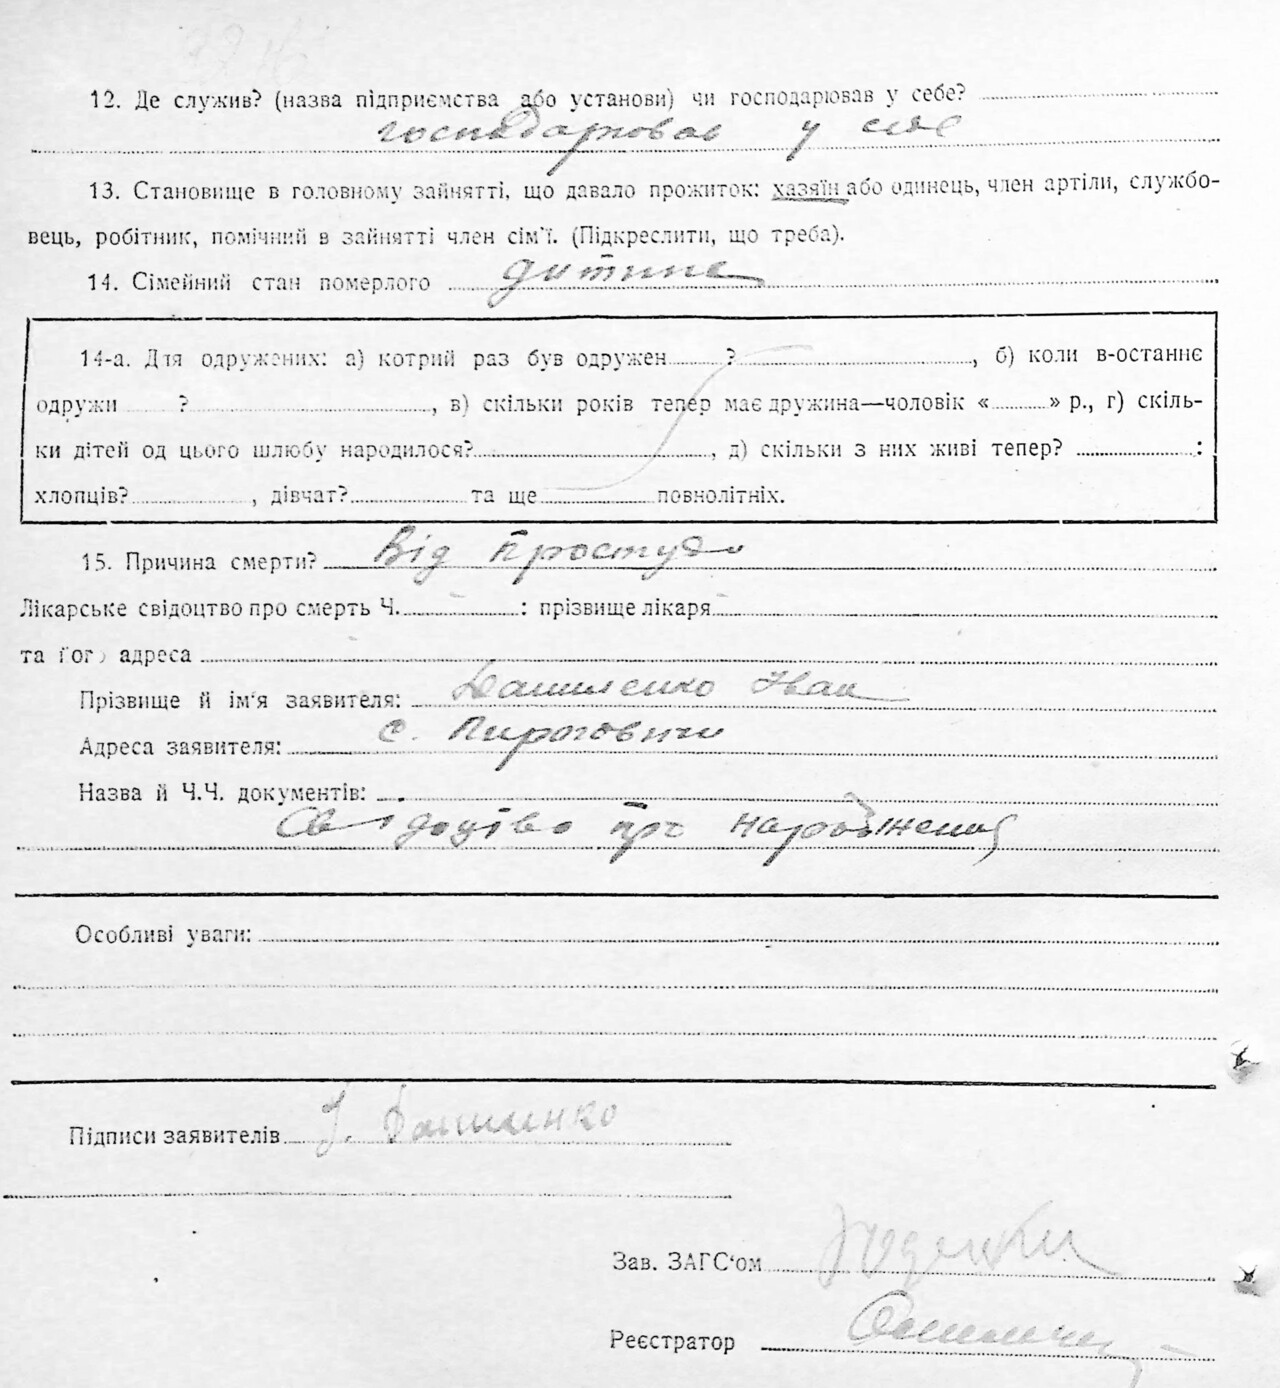 12. Де служив? (назва підприємства або установи) чи господарював у себе?
господарював у себе
13. Становище в головному зайнятті, що давало прожиток: хазяїн або одинець, член артілі, службо-
вець, робітник, помічний в зайнятті член сім'ї. (Підкреслити, що треба).
14. Сімейний стан померлого дитина
14-а. Для одружених: а) котрий раз був одружен ? , б) коли в-останнє
одружи ? , в) скільки років тепер має дружина—чоловік « » р., г) скіль-
ки дітей од цього шлюбу народилося? , д) скільки з них живі тепер? :
хлопців? , дівчат? та ще повнолітніх.
15. Причина смерти? Від простуди
Лікарське свідоцтво про смерть Ч. : прізвище лікаря
та його адреса
Прізвище й ім'я заявителя: Даниленко Іван
Адреса заявителя: с. Пироговичи
Назва й Ч.Ч. документів:
Свідоцтво про народження
Особливі уваги:
Підписи заявителів І.
Зав. ЗАГС'ом
Реєстратор